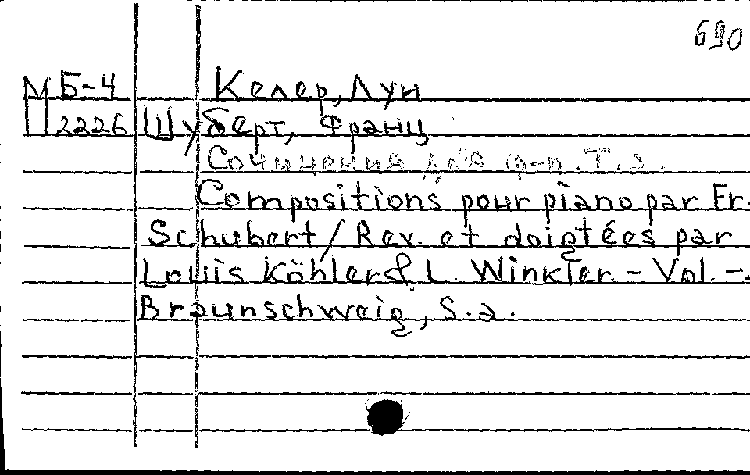 690
М Б-4 Келер, Луи
П 2226 Шуберт, Франц
Сочинения для ф-п. Т.2.
Compositions pour piano par Fr.
Schubert / Rev. et doigtées par
Louis Köhler & L. Winkler. - Vol. -.
Braunschweig, S.a.